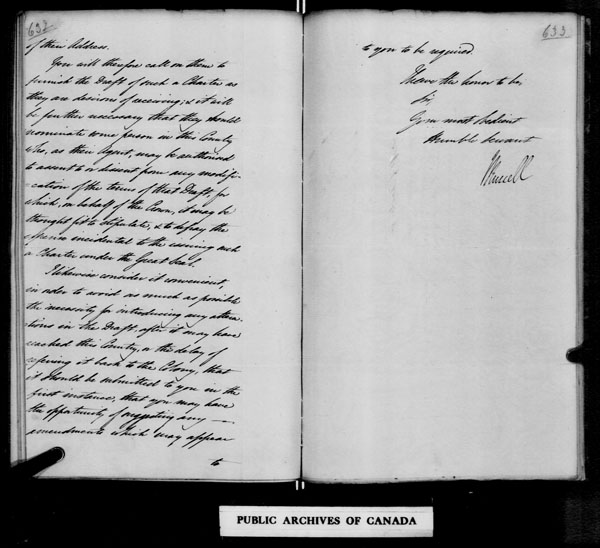 632
of their Address.
You will therefore call on them to
furnish the Draft of such a Charter as
they are desirous of receiving; & it will
be further necessary that they should
nominate some person in this Country
who, as their Agent, may be authorised
to assent to or dissent from any modifi-
-cation of the terms of that Draft, for
which, on behalf of the Crown, it may be
thought fit to stipulate, & to defray the
expense incidental to the issuing such
a Charter under the Great Seal.
I likewise consider it convenient,
in order to avoid as much as possible
the necessity for introducing any altera-
-tions in the Draft after it may have
reached this Country, or the delay of
referring it back to the Colony, that
it should be submitted to you in the
first instance, that you may have
the opportunity of suggesting any
amendments which may appear
to
633
to you to be required.
I have the honor to be,
Sir,
Your most obedient
Humble Servant
J Russell
PUBLIC ARCHIVES OF CANADA